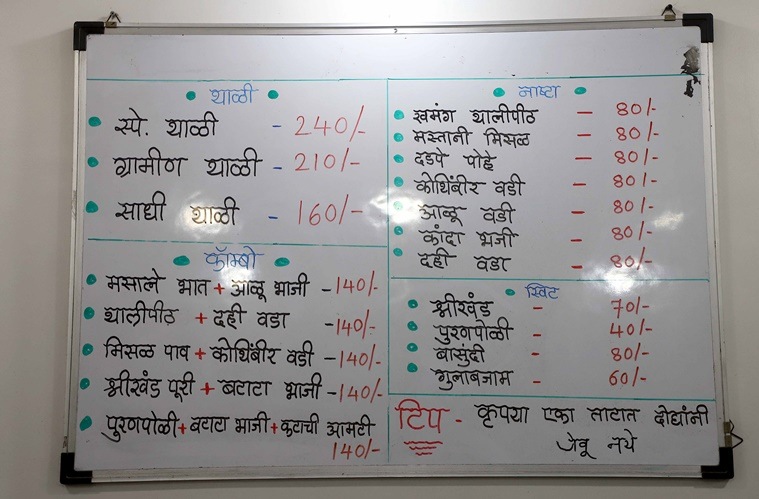 थाळी
स्पे. थाळी - 240/-
ग्रामीण थाळी - 210/-
साधी थाळी - 160/-
कॉम्बो
मसाले भात + आळू भाजी - 140/-
थालीपीठ + दही वडा - 140/-
मिसळ पाव + कोथिंबीर वडी - 140/-
श्रीखंड पूरी + बटाटा भाजी - 140/-
पुरणपोळी + बटाटा भाजी + कटाची आमटी
140/-
नाष्टा
खमंग थालीपीठ - 80/-
मस्तानी मिसळ - 80/-
दडपे पोहे - 80/-
कोथिंबीर वडी - 80/-
आळू वडी - 80/-
कांदा भजी - 80/-
दही वडा - 80/-
स्विट
श्रीखंड - 70/-
पुरणपोळी - 40/-
बासुंदी - 80/-
गुलाबजाम - 60/-
टिप - कृपया एका ताटात दोघांनी
जेवू नये